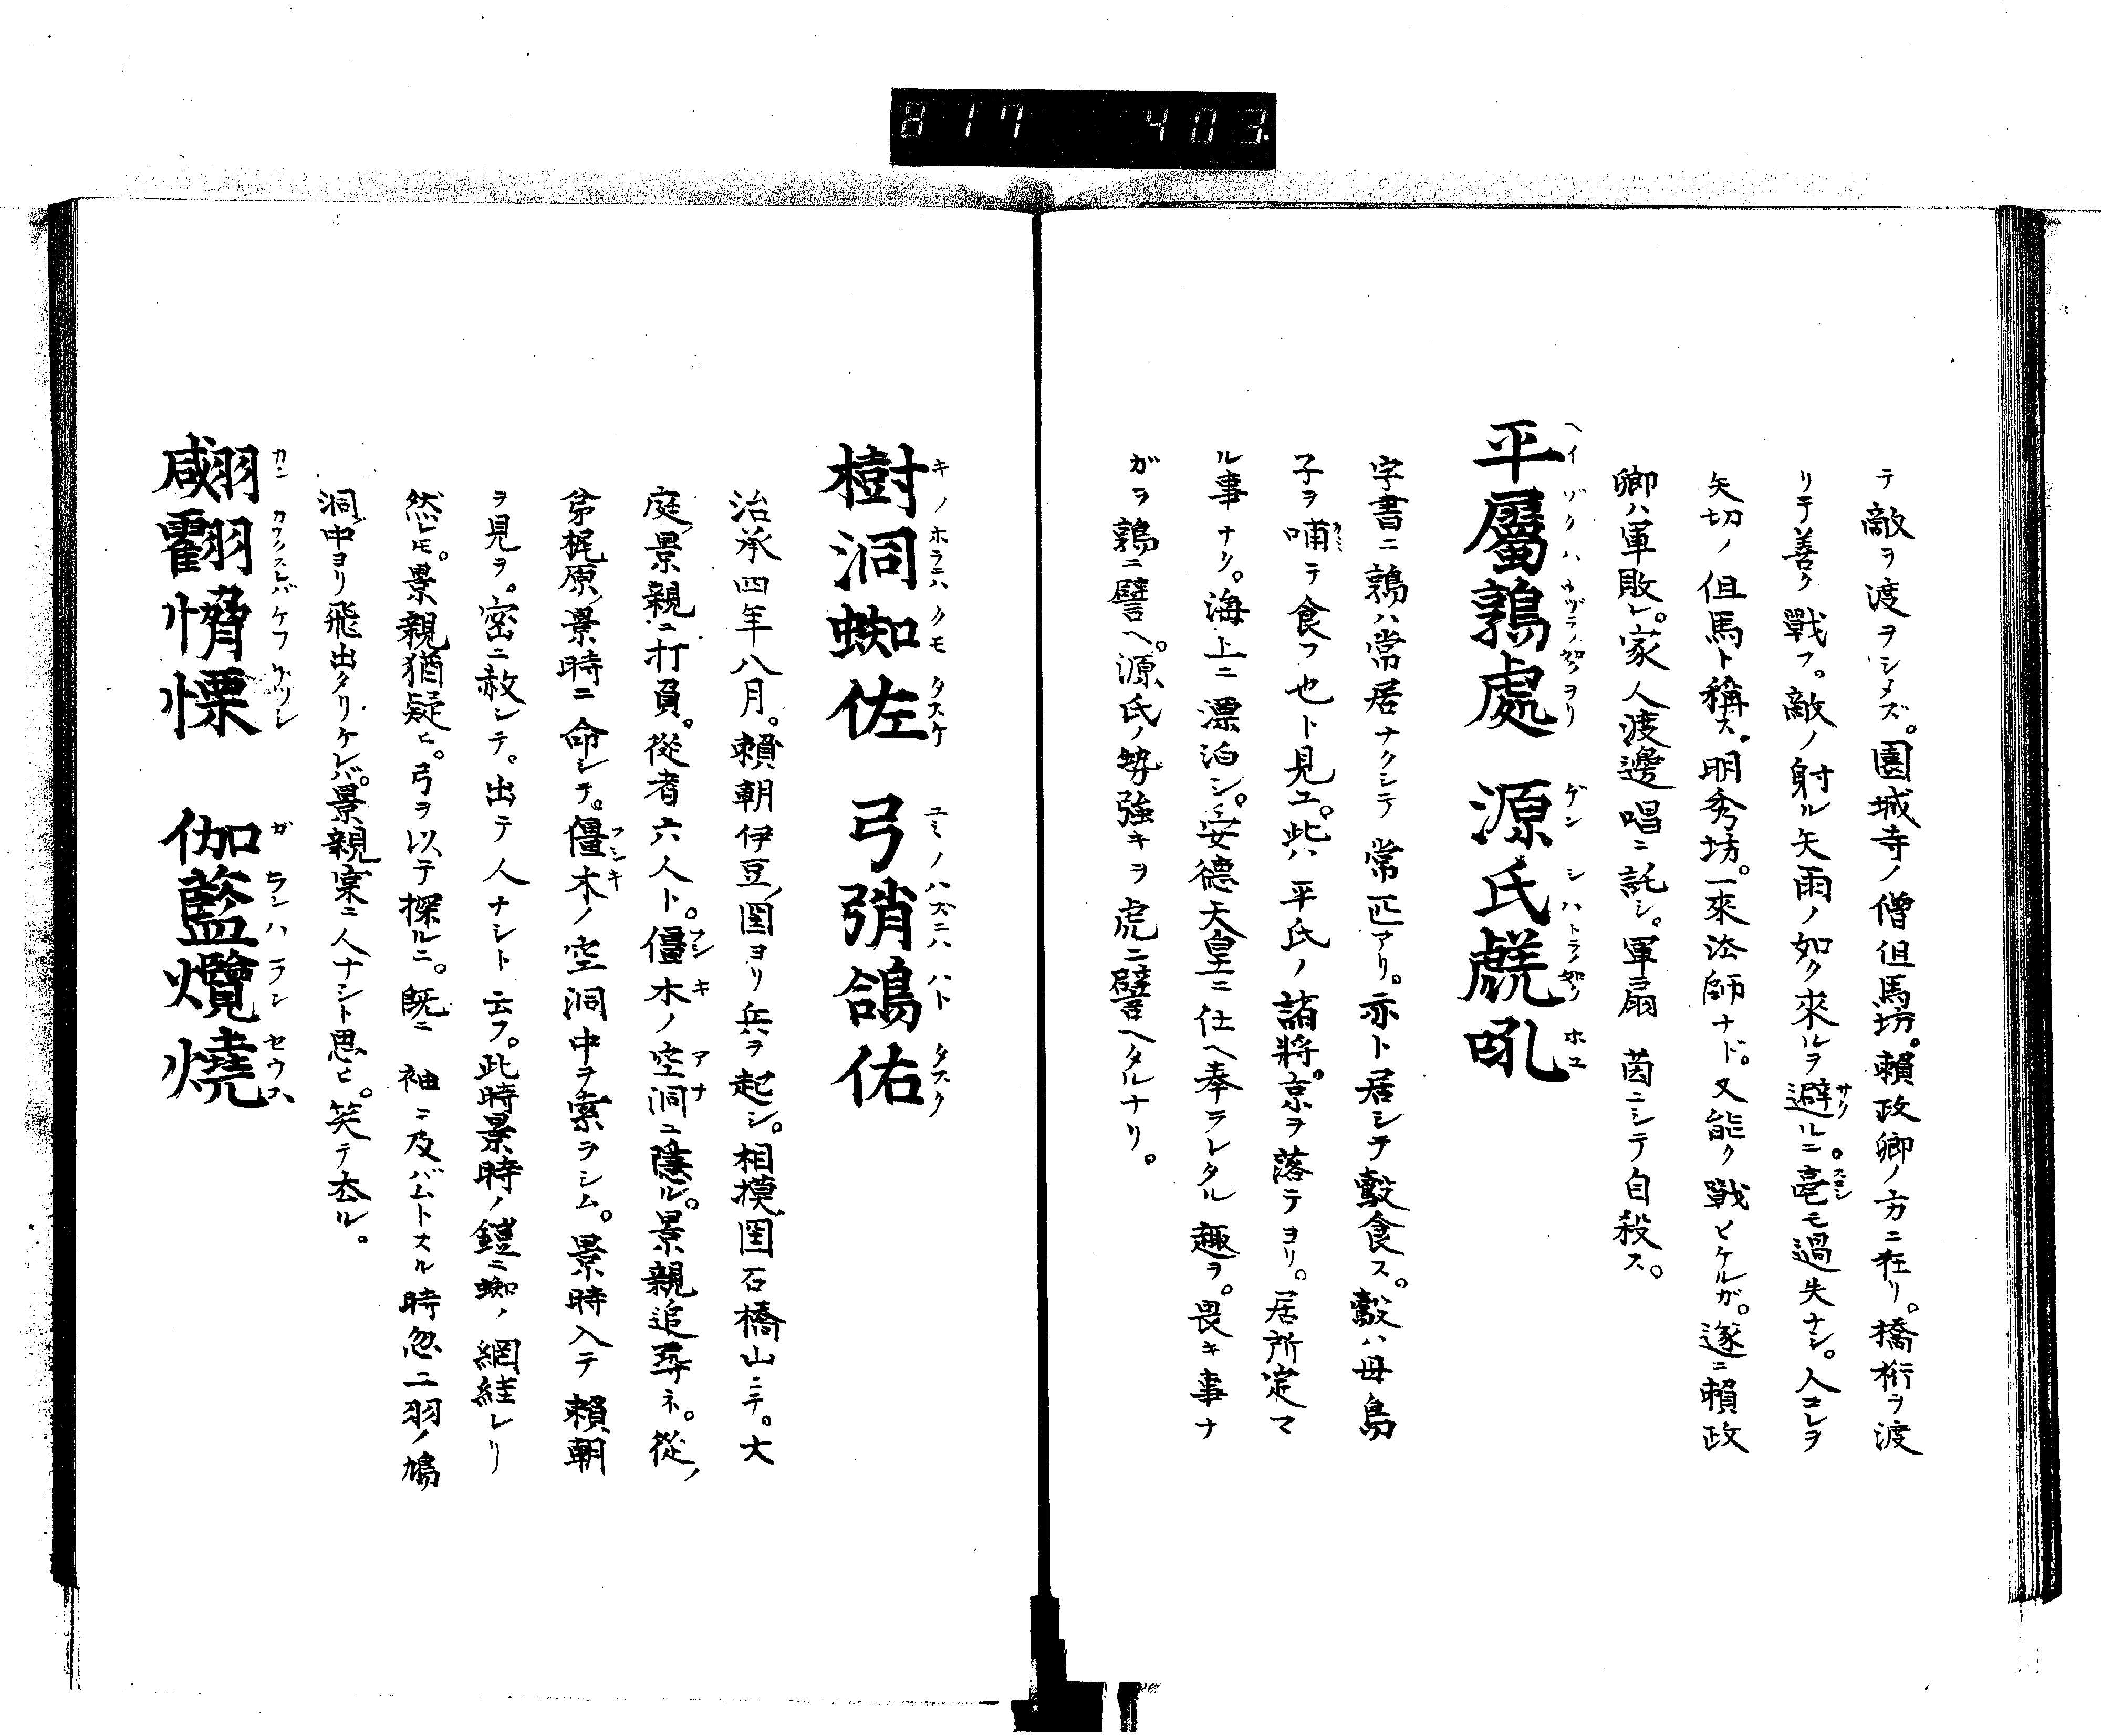 817 403.
テ敵ヲ渡ヲシメズ。園城寺ノ僧但馬坊。頼政卿ノ方ニ在リ。橋桁ヲ渡
リテ善ク戰フ。敵ノ射ル矢雨ノ如ク來ルヲ避ルニ。毫モ過失ナシ。人コレヲ
サク
スコシ
矢切ノ但馬ト稱ス。明秀坊。一來法師ナド。又能ク戰ヒケルガ。遂ニ頼政
卿ハ軍敗レ。家人渡邊唱ニ託シ。軍扇茵ニシテ自殺ス。
平屬鶉處 源氏虤吼
ヘイゾクハウヅラノ如クヲリ ゲンシハトラノ如クホユ
字書ニ鶉ハ常居ナクシテ常匹アリ。亦ト居シテ鷇食ス。鷇ハ母鳥
子ヲ哺テ食フ也ト見エ。此ハ平氏ノ諸將。京ヲ落テヨリ。居所定マ
ル事ナリ。海上ニ漂泊シ。安德天皇ニ仕ヘ奉ラレタル趣ヲ。畏キ事ナ
ガラ鶉ニ譬ヘ。源氏ノ勢強キヲ虎ニ譬ヘタルナリ。
樹洞蜘佐 弓弰鴿佑
キノホラニハクモタスケ ユミノハズニハハトタスク
治承四年八月。頼朝伊豆ノ国ヨリ兵ヲ起シ。相摸国石橋山ニテ。大
庭ノ景親ニ打負。從者六人ト。僵木ノ空洞ニ隱ル。景親追尋ネ。從ノ
フシキ
アナ
弟梶原ノ景時ニ命シテ。僵木ノ空洞中ヲ索ラシム。景時入テ頼朝
フシキ
ヲ見ヲ。密ニ赦シテ。出テ人ナシト云フ。此時景時ノ鎧ニ蜘ノ網絓レリ
然レ𪜈。景親猶疑ヒ。弓ヲ以テ探ルニ。既ニ袖ニ及バムトスル時忽ニ羽ノ鳩
洞中ヨリ飛出タリケレバ。景親寔ニ人ナシト思ヒ。笑テ去ル。
翻愶慄 伽藍爁燒
カン カワクスレバケフ ガランハランセウス